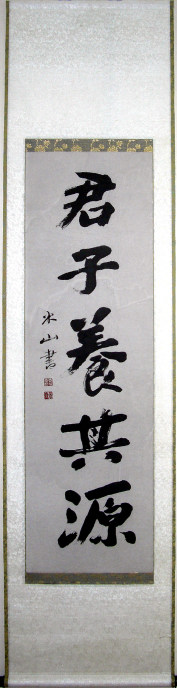 君子養其源
米山書